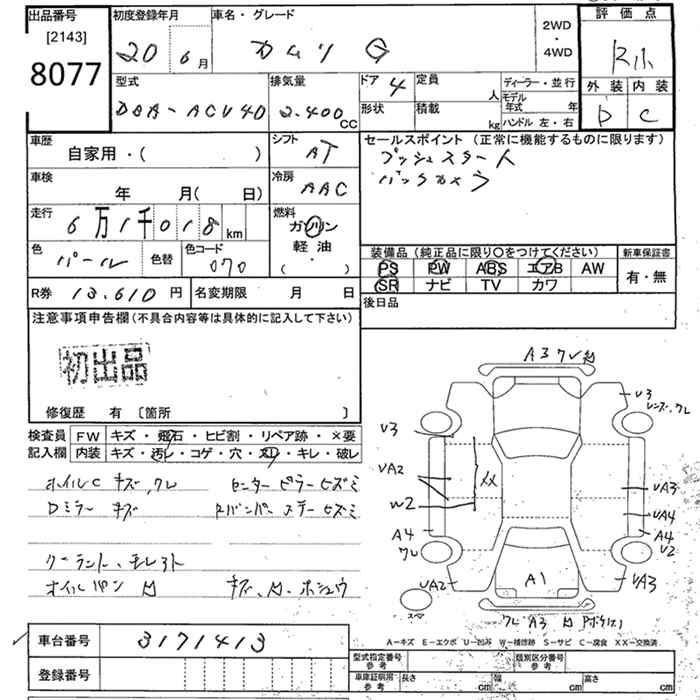 出品番号
[2143]
8077
初度登録年月
20 6月
車名・グレード
カムリ G
2WD
・
4WD
評価点
R小
外装 内装
D C
型式
DBA-ACV40
排気量
2.400cc
ドア 4
形状
定員 人
積載 kg
ディーラー・並行
モデル年式 年
ハンドル 左・右
車歴
自家用・( )
シフト
AT
車検
年 月( 日)
冷房
AAC
走行
6万1千018km
燃料
ガソリン
軽油
( ・ )
色
パール
色替
色コード
070
R券 13.610円
名変期限 月 日
セールスポイント(正常に機能するものに限ります)
プッシュスタート
バックカメラ
装備品(純正品に限り〇をつけてください)
PS PW ABS エアB AW
SR ナビ TV カワ
新車保証書
有・無
後日品
注意事項申告欄(不具合内容等は具体的に記入して下さい)
初出品
修復歴 有 〔箇所 〕
検査員記入欄
FW キズ・飛石・ヒビ割・リペア跡・×要
内装 キズ・汚レ・コゲ・穴・スレ・キレ・破レ
ホイルC キズ,ワレ
センターピラーヒズミ
Dミラー キズ
Rバンパーステーヒズミ
クーラント、モレアト
オイルパン 凹
キズ、凹、ホシュウ
A3 ワレ 凹
V3
レンズ、ワレ
V3
VA2
XX
W2
A4
ワレ
VA2
VA3
VA4
A4
V2
VA3
A1
ワレ A3 凹
A-キズ E-エクボ U-凹み W-補修跡 S-サビ C-腐食 XX-交換済
車台番号
3171413
登録番号
型式指定番号
参考
類別区分番号
参考
車庫証明用
参考
長さ cm
幅 cm
高さ cm